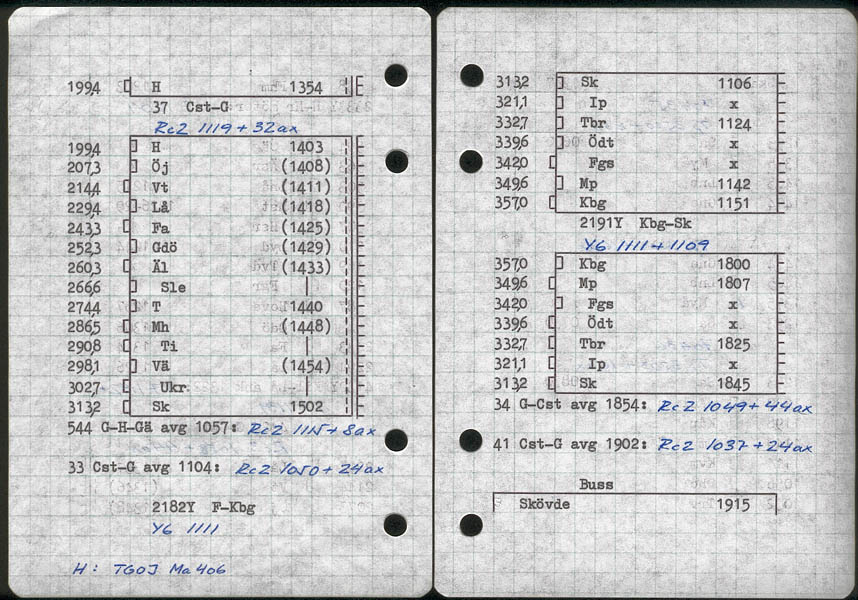 199,4 H 1354
37 Cst-G
Rc2 1119 + 32ax
199,4 H 1403
207,3 Öj (1408)
214,4 Vt (1411)
229,4 Lå (1418)
243,3 Fa (1425)
252,3 Gdö (1429)
260,3 Äl (1433)
266,6 Sle |
274,4 T 1440
286,5 Mh (1448)
290,8 Ti |
298,1 Vä (1454)
302,7 Ukr |
313,2 Sk 1502
544 G-H-Gä avg 1057: Rc2 1115 + 8ax
33 Cst-G avg 1104: Rc2 1050 + 24ax
2182Y F-Kbg
Y6 1111
H: TGOJ Ma 406
313,2 Sk 1106
321,1 Ip x
332,7 Tbr 1124
339,6 Ödt x
342,0 Fgs x
349,6 Mp 1142
357,0 Kbg 1151
2191Y Kbg-Sk
Y6 1111 + 1109
357,0 Kbg 1800
349,6 Mp 1807
342,0 Fgs x
339,6 Ödt x
332,7 Tbr 1825
321,1 Ip x
313,2 Sk 1845
34 G-Cst avg 1854: Rc2 1049 + 44ax
41 Cst-G avg 1902: Rc2 1037 + 24ax
Buss
Skövde 1915